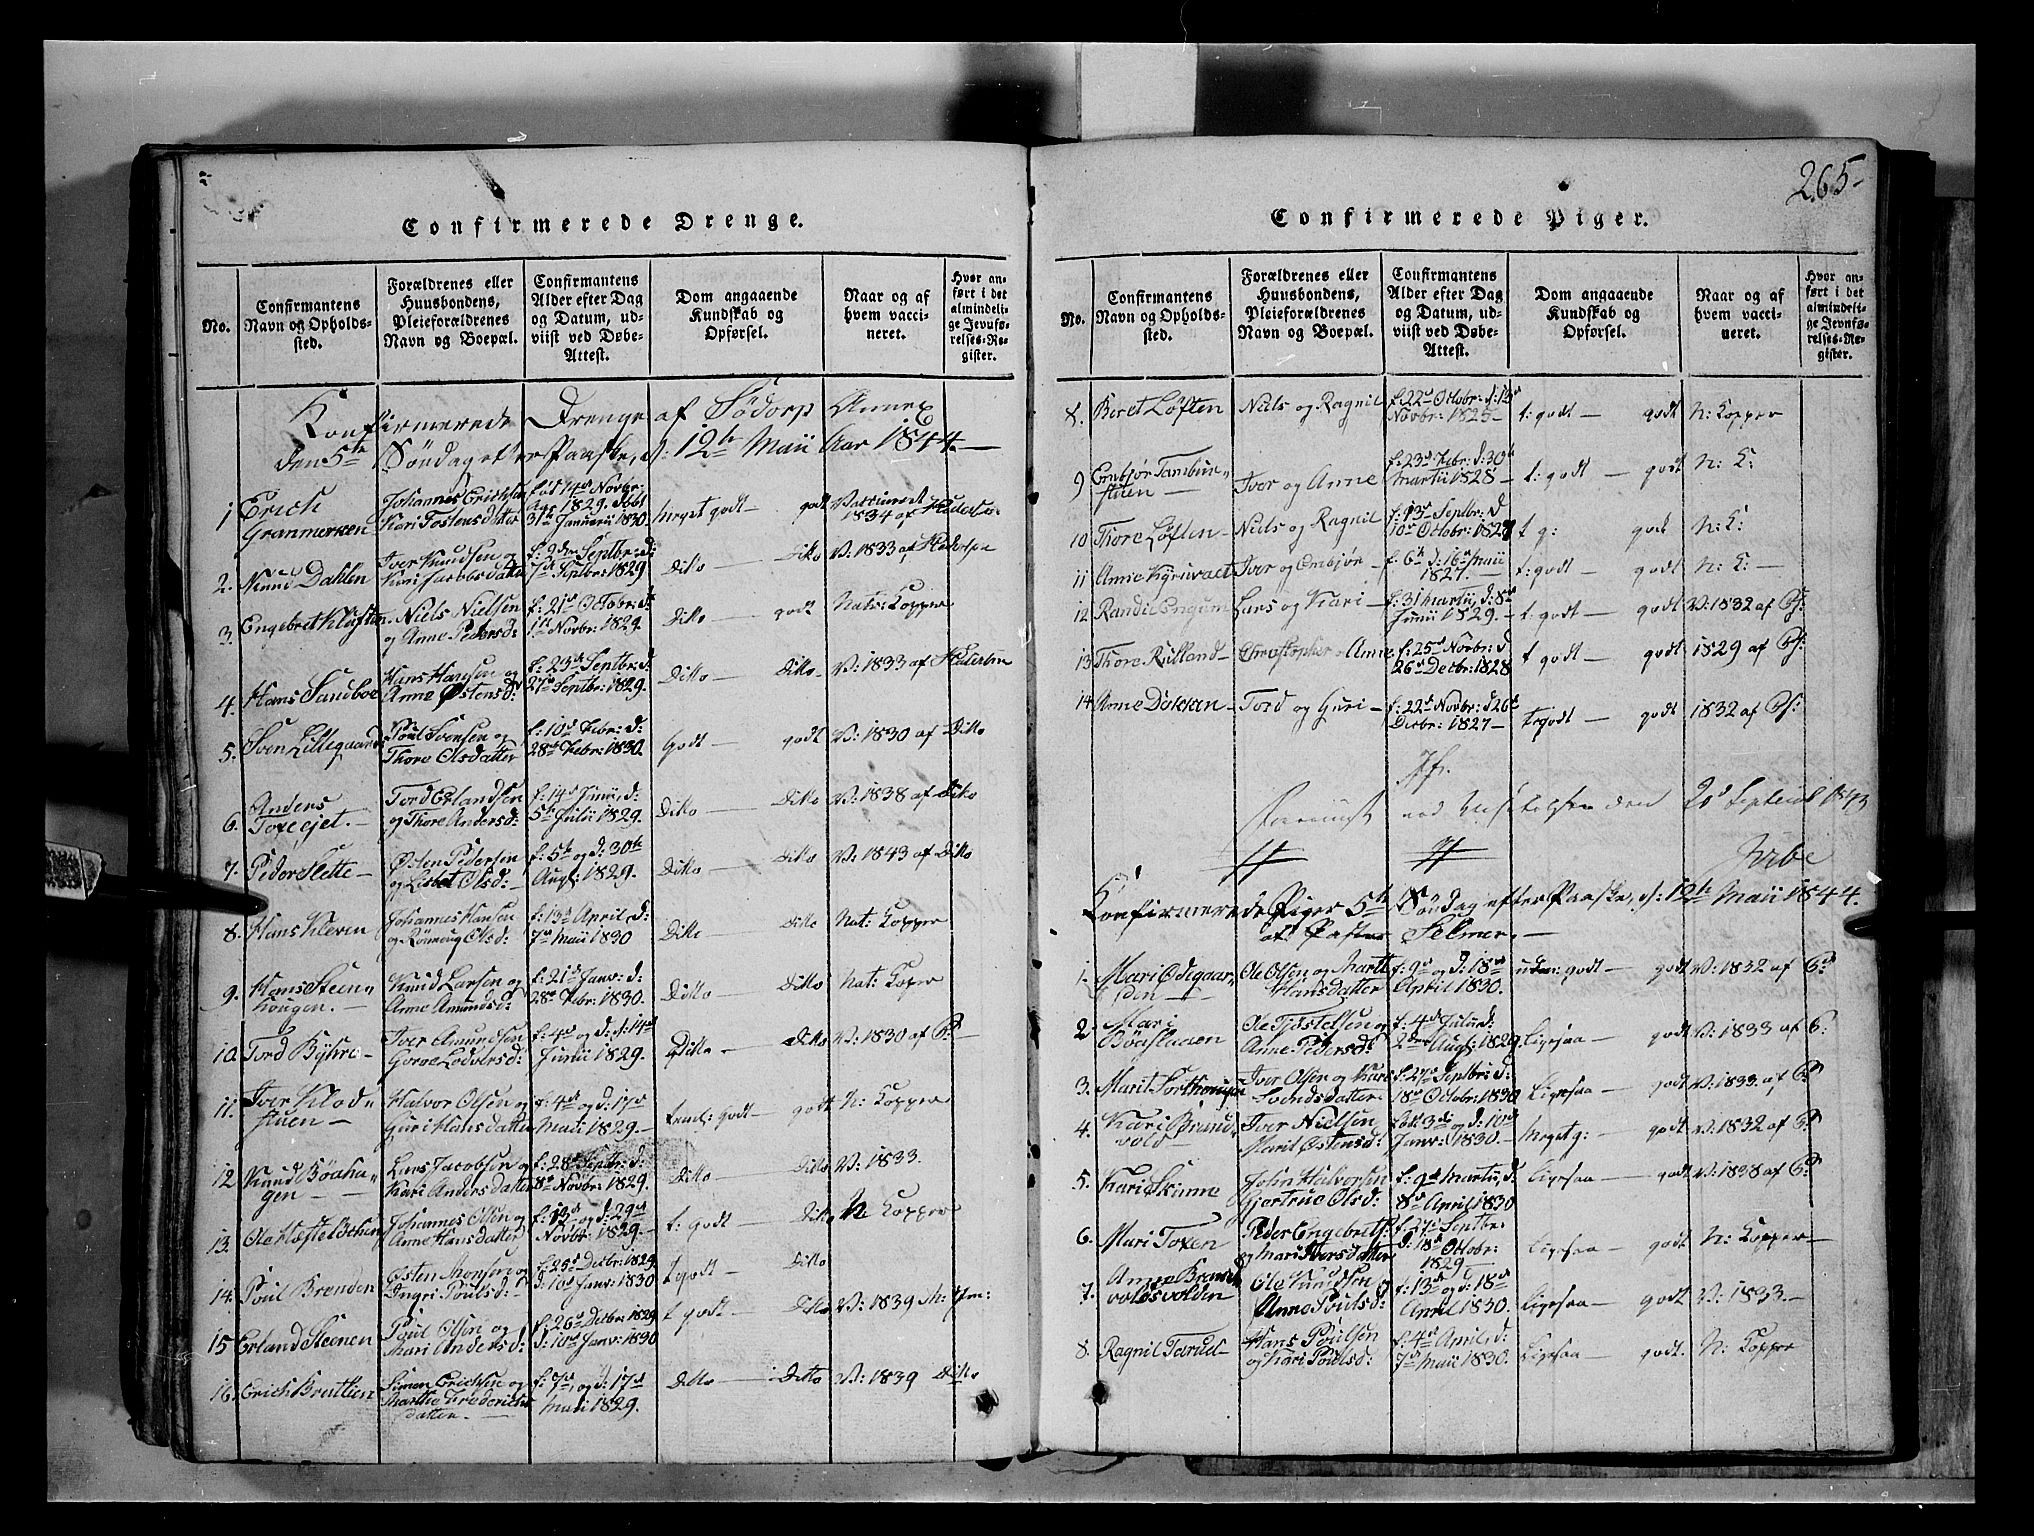 265
Confirmerede Drenge.
No.
Confirmantens Navn og Opholdssted.
Forældrenes eller Huusbondens, Pleieforældrenes Navn og Boepæl.
Confirmantens Alder efter Dag og Datum, udviist ved Døbe-Attest.
Dom angaaende Kundskab og Opførsel.
Naar og af hvem vaccineret.
Hvor anført i det almindelige Jevnførelses-Register.
Konfirmerede Drenge af Södorp Annex
den 5te Söndag efter Paaske, d: 12te Maii Aar 1844.
1 Erich Johannes Erichsen født 14de Novbr: meget godt godt Vaccineret
Kari Tostensdatter 1829. døbt 31te Januarii 1830 1834 af
2. Knud Dahlen Iver Knudsen og f: 2den Septbr: d: Ditto Ditto V: 1833 af
Kari Jacobsdatter 7de Septbr: 1829
3. Engebret Kløften Niels Nielsen f: 21de Octobr: d: Ditto godt Nat: Kopper
og Anne Pedersd: 1te Novbr: 1829.
4. Hans Sandboe Hans Hansen og f: 23de Septbr: d: Ditto Ditto V: 1833 af
Anne Østensd: 27de Septbr: 1829.
5. Sven Lillegaard Poul Svensen og f: 10de Febr: d: Godt godt V: 1830 af Ditto
Thore Olsdatter 28de Febr: 1830.
6. Anders Tord Erlandsen f: 14de Junii, d: Ditto Ditto V: 1838 af Ditto
og Thore Andersd: 5te Julii 1829.
7. Peder Slette Østen Pedersen f: 5te og d: 30te Ditto Ditto V: 1843 af Ditto
og Lisbet Olsd: Aug: 1829.
8. Hans Kleven Johannes Hansen f: 13de April, d: Ditto Ditto Nat: Kopper
og Rönnoug Olsd: 7de Maii 1830
9. Hans Steen= Knud Larsen og f: 21de Janv: d: Ditto Ditto Nat: Koper
hougen. Anne Amundsd: 28de Febr: 1830.
10. Tord Iver Amundsen f: 4de og d: 14de Ditto Ditto V: 1830 af P:
Junii 1829.
11. Iver Halvor Olsen og f: 4de og d: 17de godt godt N: Kopper
stuen Guri Hansdatter Maii 1829.
12. Knud Böaha= Lars Jacobsen og f: 28de Septbr: d: Ditto Ditto V: 1833.
gen Kari Andersdatter 8de Novbr: 1829.
13. Ole Johannes Olsen og f: 13de og d: 29de t: godt Ditto N Kopper
Anne Hansdatter Novbr: 1829.
14. Poul Brenden Østen Monsen og f: 25de Decbr: 1829 t godt Ditto
Ingri Poulsd: d: 10de Janv: 1830
15 Erland Steenen Poul Olsen og f: 26de Decbr: 1829 t godt Ditto V: 1839
Mari Andersd: d: 10de Janv: 1830
16. Erich Simen Erichsen og f: 7de og d: 17de Ditto Ditto V: 1839 Ditto
Marthe Frederichs Maii 1829.
datter.
Confirmerede Piger.
No.
Confirmantens Navn og Opholdssted.
Forældrenes eller Huusbondens, Pleieforældrenes Navn og Boepæl.
Confirmantens Alder efter Dag og Datum, udviist ved Døbe-Attest.
Dom angaaende Kundskab og Opførsel.
Naar og af hvem vaccineret.
Hvor anført i det almindelige Jevnførelses-Register.
8. Beret Løften Niels og Ragnil f: 22de Octobr: d: 13de t: godt godt N: Kopper
Novbr: 1825
9 Embjør Iver og Anne f: 23de Febr: d: 30te t: godt godt N: K:
stuen Martii 1828
10 Thore Løften Niels og Ragnil f: 13de Septbr: d t g: godt N: K:
10de Octobr: 1827
11 Anne Iver og Embjør f: 6te d: 16de Maii t: godt godt N: K:
1827.
12 Randi Engum Lars og Kari f: 31 Martii, d: 8de t: godt godt V: 1832 af
Junii 1829.
13 Thore Rulland Christopher o Anne f: 25de Novbr: d t godt godt 1829 af
26de Decbr: 1828
14 Anne Dokken Tord og Guri f: 22de Novbr: d 26de godt godt 1832 af
Decbr: 1827
ved Visitatsen den 20de September 1843
Konfirmerede Piger 5te Søndag efter Paaske, d: 12te Maii 1844.
af Pastor Selmer.
1. Mari Odegaar= Ole Olsen og Marit f: 9de og d: 18de godt godt V: 1832 af
den Hansdatter April 1830.
2 Mari f: 4de Julii d: Ligesaa godt V: 1833 af
Anne Pedersd: 2den Aug: 1829.
3. Marit Iver Olsen og Kari f: 27de Septbr: d: Ligesaa godt V: 1833. af
Svendsdatter 18de Octobr: 1830
4. Kari Brand= Iver Nielsen født 3de og d: 10de Meget g: godt V: 1832 af
vold Marit Østensd: Janv: 1830.
5. Kari Skinne John Halvorsen f: 9de Martii, d: Ligesaa godt V: 1838 af
Gjertrue Olsd: 8de April 1830
6. Mari Toxen Peder Engebrets: f: 27de Septbr: Ligesaa godt N: Kopper
og Mari Iversdatter d: 18de Octobr:
1829
7. Anne Brands Ole Knudsen f: 13de og d: 18de Ligesaa godt V: 1833.
voldsvolden Anne Poulsd: April 1830.
8. Ragnil Hans Poulsen f: 4de April, d: Ligesaa godt. N: Kopper
og Kari Poulsd: 7de Maii 1830.